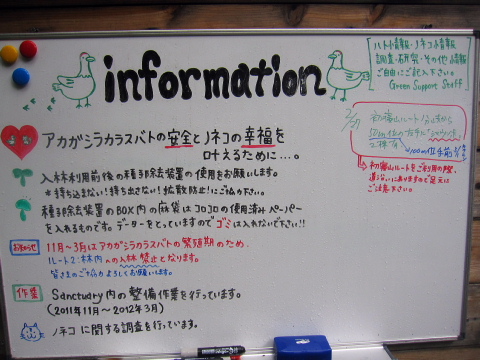 information
ハト情報・ノネコ情報
調査・研究・その他情報
ご自由にご記入下さい。
Green Support Staff
2/27
初寝山ルート
アカガシラカラスバトの安全とノネコの幸福を
叶えるために…。
入林利用前後の種子除去装置の使用をお願いします。
*持ち込まない!持ち出さない!拡散防止!にご協力下さい。
種子除去装置のBOX内の麻袋はコロコロの使用済みペーパー
を入れるものです。データーをとっていますのでゴミは入れないで下さい!!
→初寝山ルートをご利用の際、
道沿いにありますので足元に
ご注意下さい。
お知らせ
11月~3月はアカガシラカラスバトの繁殖期のため、
ルート2:林内への入林禁止となります。
皆さまのご協力よろしくお願いします。
作業
Sanctuary内の整備作業を行っています。
(2011年11月~2012年3月)
ノネコに関する調査を行っています。